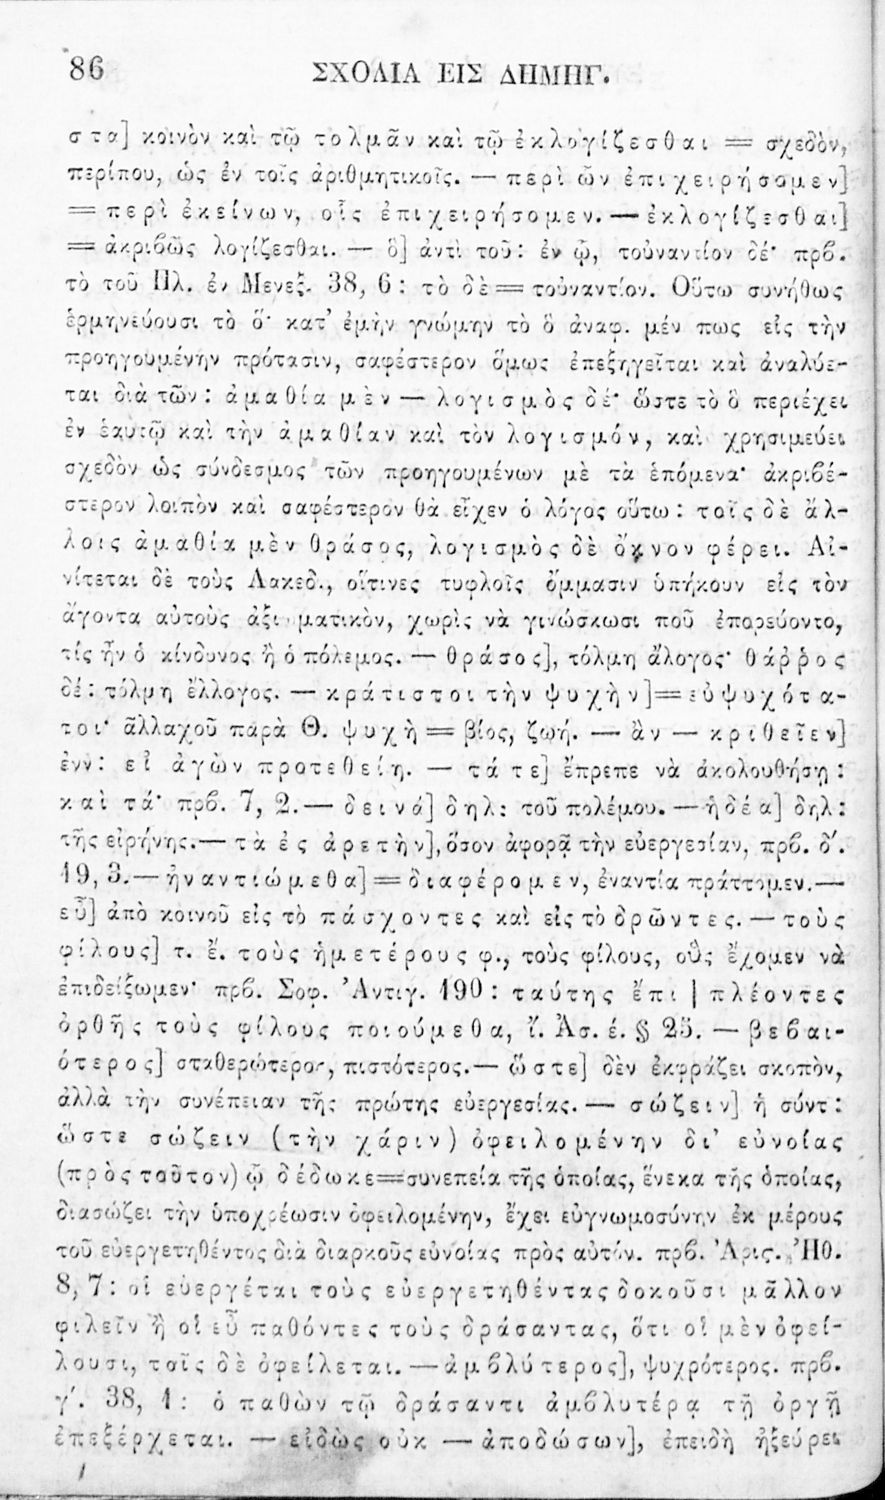 86 ΣΧΟΛΙΑ ΕΙΣ ΔΗΜΗΓ.
στα] κοινὸν καὶ τῷ τολμᾶν καὶ τῷ ἐκλογίζεσθαι = σχεδὸν,
περίπου, ὡς ἐν τοῖς ἀριθμητικοῖς. — περὶ ὧν ἐπιχειρήσομεν]
= περὶ ἐκείνων, οἷς ἐπιχειρήσομεν. — ἐκλογίζεσθαι]
= ἀκριβῶς λογίζεσθαι. — ὃ] ἀντὶ τοῦ: ἐν ᾧ, τοὐναντίον δέ· πρβ.
τὸ τοῦ Πλ. ἐν Μενεξ. 38, 6: τὸ δὲ = τοὐναντίον. Οὕτω συνήθως
ἑρμηνεύουσι τὸ ὅ· κατ' ἐμὴν γνώμην τὸ ὃ ἀναφ. μέν πως εἰς τὴν
προηγουμένην πρότασιν, σαφέστερον ὅμως ἐπεξηγεῖται καὶ ἀναλύε-
ται διὰ τῶν: ἀμαθία μὲν — λογισμὸς δέ· ὥστε τὸ ὃ περιέχει
ἐν ἑαυτῷ καὶ τὴν ἀμαθίαν καὶ τὸν λογισμόν, καὶ χρησιμεύει
σχεδὸν ὡς σύνδεσμος τῶν προηγουμένων μὲ τὰ ἑπόμενα· ἀκριβέ-
στερον λοιπὸν καὶ σαφέστερον θὰ εἶχεν ὁ λόγος οὕτω: τοῖς δὲ ἄλ-
λοις ἀμαθία μὲν θράσος, λογισμὸς δὲ ὄκνον φέρει. Αἰ-
νίτεται δὲ τοὺς Λακεδ., οἵτινες τυφλοῖς ὄμμασιν ὑπήκουν εἰς τὸν
ἄγοντα αὐτοὺς ἀξιωματικὸν, χωρὶς νὰ γινώσκωσι ποῦ ἐπορεύοντο,
τίς ἦν ὁ κίνδυνος ἢ ὁ πόλεμος. — θράσος], τόλμη ἄλογος· θάῤῥος
δέ: τόλμη ἔλλογος. — κράτιστοι τὴν ψυχὴν] = εὐψυχότα-
τοι· ἀλλαχοῦ παρὰ Θ. ψυχὴ = βίος, ζωή. — ἂν — κριθεῖεν]
ἐνν: εἰ ἀγὼν προτεθείη. — τά τε] ἔπρεπε νὰ ἀκολουθήσῃ:
καὶ τά· πρβ. 7, 2. — δεινά] δηλ: τοῦ πολέμου. — ἡδέα] δηλ:
τῆς εἰρήνης. — τὰ ἐς ἀρετὴν], ὅσον ἀφορᾷ τὴν εὐεργεσίαν, πρβ. δ'.
19, 3. — ἠναντιώμεθα] = διαφέρομεν, ἐναντία πράττομεν. —
εὖ] ἀπὸ κοινοῦ εἰς τὸ πάσχοντες καὶ εἰς τὸ δρῶντες. — τοὺς
φίλους] τ. ἔ. τοὺς ἡμετέρους φ., τοὺς φίλους, οὓς ἔχομεν νὰ
ἐπιδείξωμεν· πρβ. Σοφ. Ἀντιγ. 190: ταύτης ἔπι | πλέοντες
ὀρθῆς τοὺς φίλους ποιούμεθα, ἴ. Ἀσ. ἑ. § 25. — βεβαι-
ότερος] σταθερώτερος, πιστότερος. — ὥστε] δὲν ἐκφράζει σκοπὸν,
ἀλλὰ τὴν συνέπειαν τῆς πρώτης εὐεργεσίας. — σώζειν] ἡ σύντ:
ὥστε σώζειν (τὴν χάριν) ὀφειλομένην δι' εὐνοίας
(πρὸς τοῦτον) ᾧ δέδωκε = συνεπείᾳ τῆς ὁποίας, ἕνεκα τῆς ὁποίας,
διασώζει τὴν ὑποχρέωσιν ὀφειλομένην, ἔχει εὐγνωμοσύνην ἐκ μέρους
τοῦ εὐεργετηθέντος διὰ διαρκοῦς εὐνοίας πρὸς αὐτόν. πρβ. Ἀρις. Ἠθ.
8, 7: οἱ εὐεργέται τοὺς εὐεργετηθέντας δοκοῦσι μᾶλλον
φιλεῖν ἢ οἱ εὖ παθόντες τοὺς δράσαντας, ὅτι οἱ μὲν ὀφεί-
λουσι, τοῖς δὲ ὀφείλεται. — ἀμβλύτερος], ψυχρότερος. πρβ.
γ'. 38, 1: ὁ παθὼν τῷ δράσαντι ἀμβλυτέρᾳ τῇ ὀργῇ
ἐπεξέρχεται. — εἰδὼς οὐκ — ἀποδώσων], ἐπειδὴ ἠξεύρει